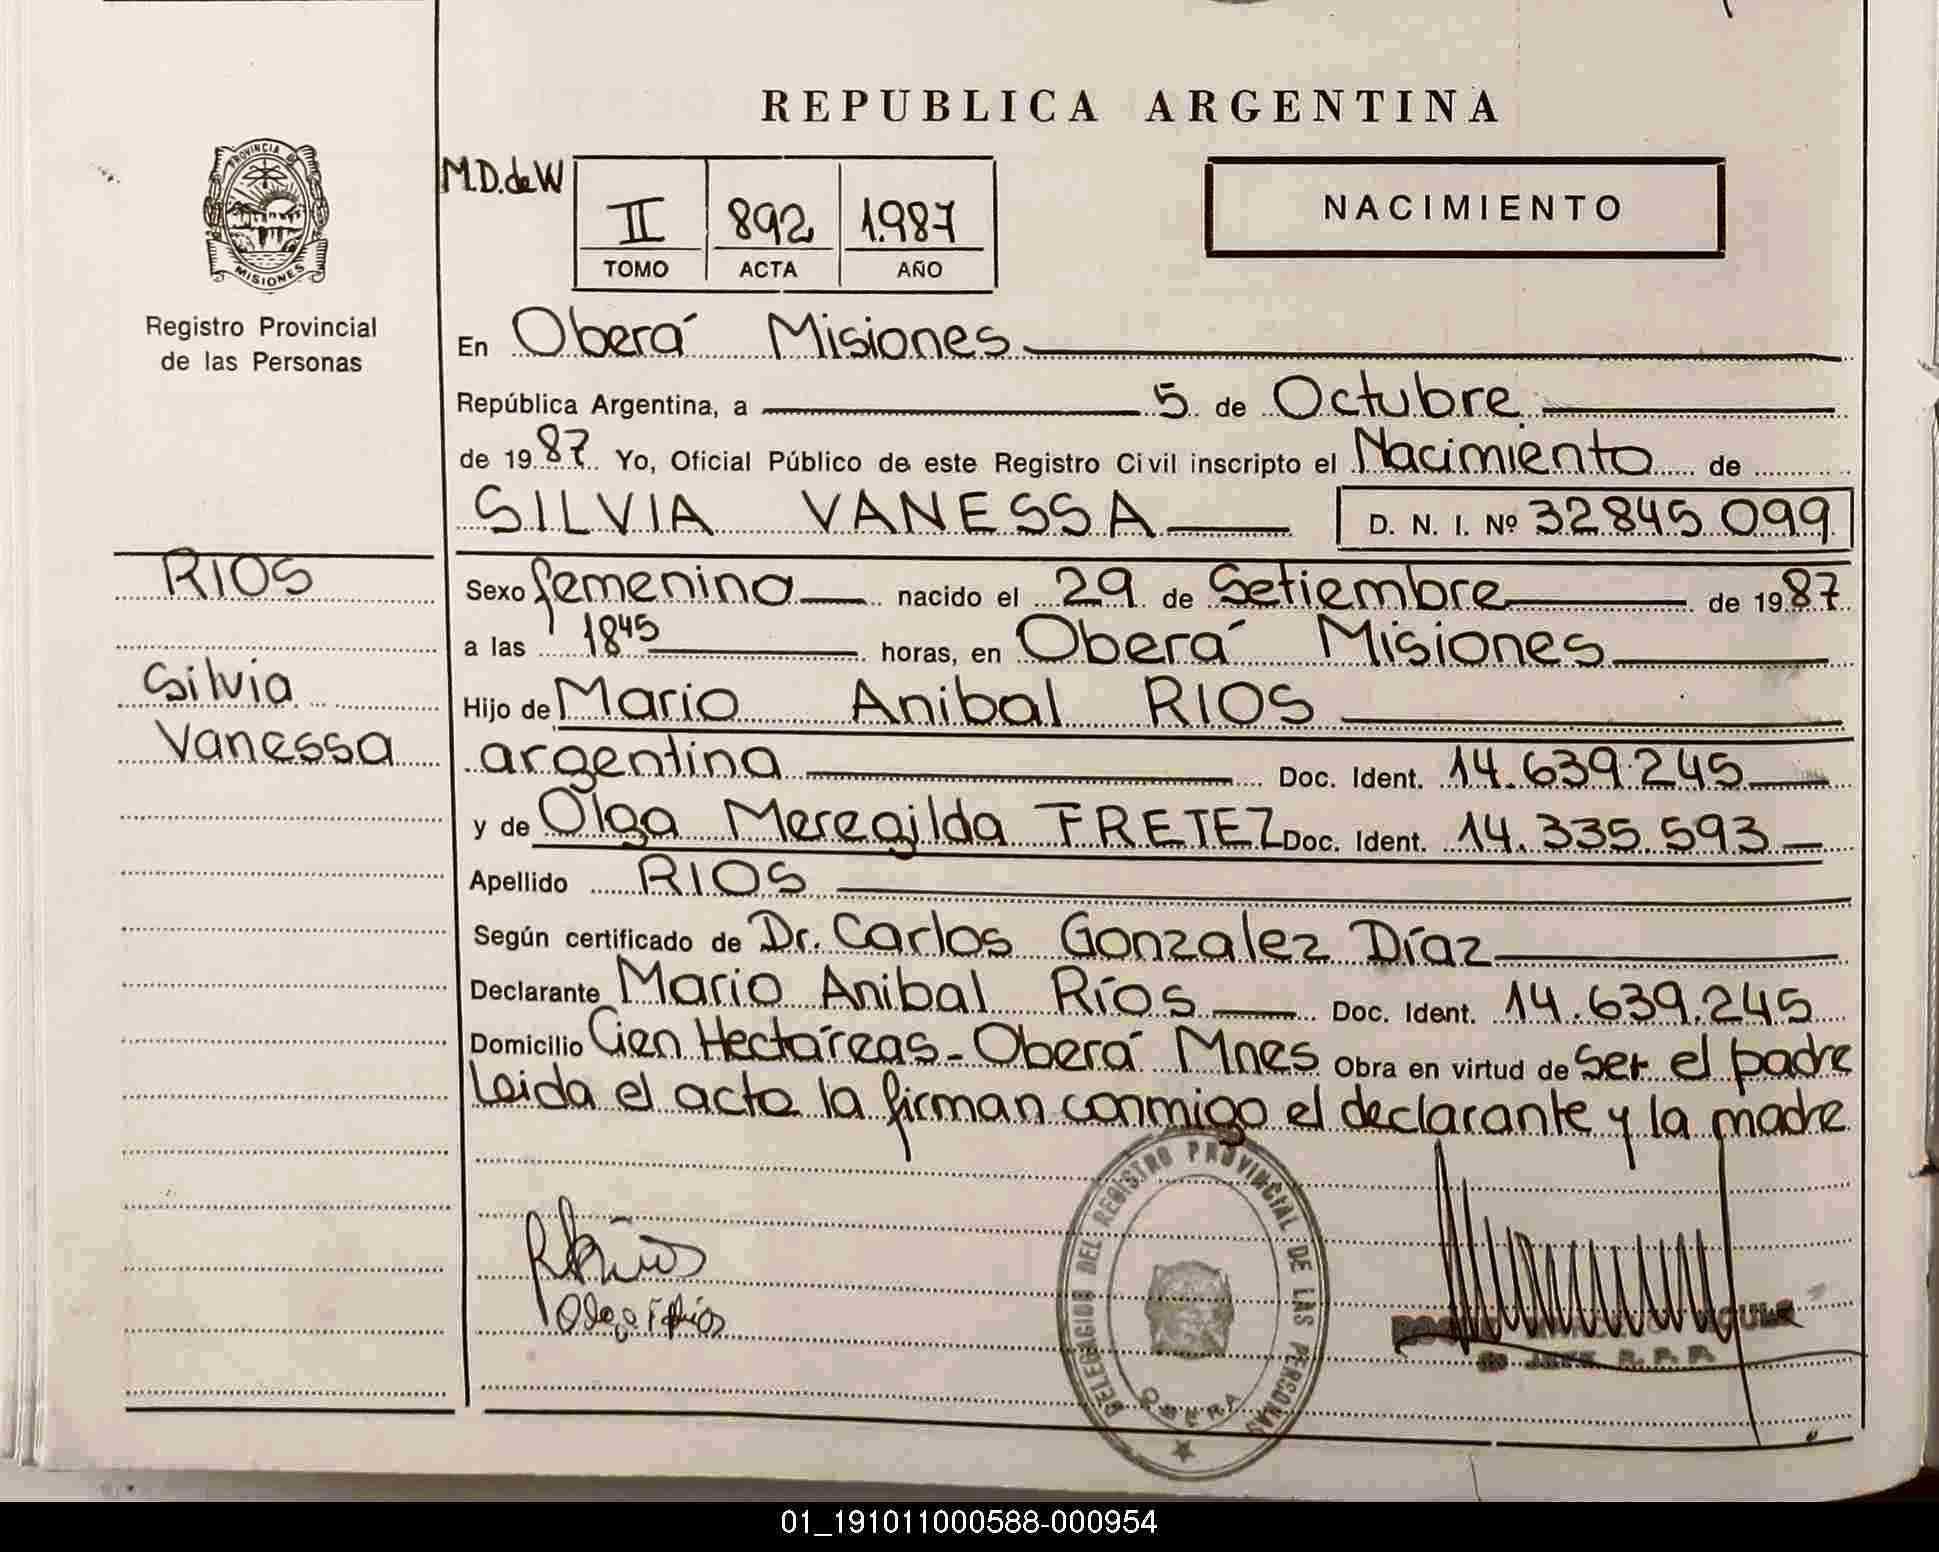 REPUBLICA ARGENTINA
PROVINCIA DE
MISIONES
Registro Provincial
de las Personas
M.D.deW
II 892 1.987
TOMO ACTA AÑO
NACIMIENTO
En Oberá Misiones
República Argentina, a 5 de Octubre
de 1987 Yo, Oficial Público de este Registro Civil inscripto el Nacimiento de
SILVIA VANESSA D. N. I. Nº 32845.099
RIOS
Silvia
Vanessa
Sexo femenino nacido el 29 de Setiembre de 1987
a las 1845 horas, en Oberá Misiones
Hijo de Mario Anibal RIOS
argentina Doc. Ident. 14.639.245
y de Olga Meregilda FRETEZ Doc. Ident. 14.335.593
Apellido RIOS
Según certificado de Dr. Carlos Gonzalez Díaz
Declarante Mario Anibal Ríos Doc. Ident. 14.639.245
Domicilio Cien Hectáreas - Oberá Mnes Obra en virtud de Ser el padre
Leida el acta la firman conmigo el declarante y la madre
DELEGACION DEL REGISTRO PROVINCIAL DE LAS PERSONAS
OBERA
01_191011000588-000954